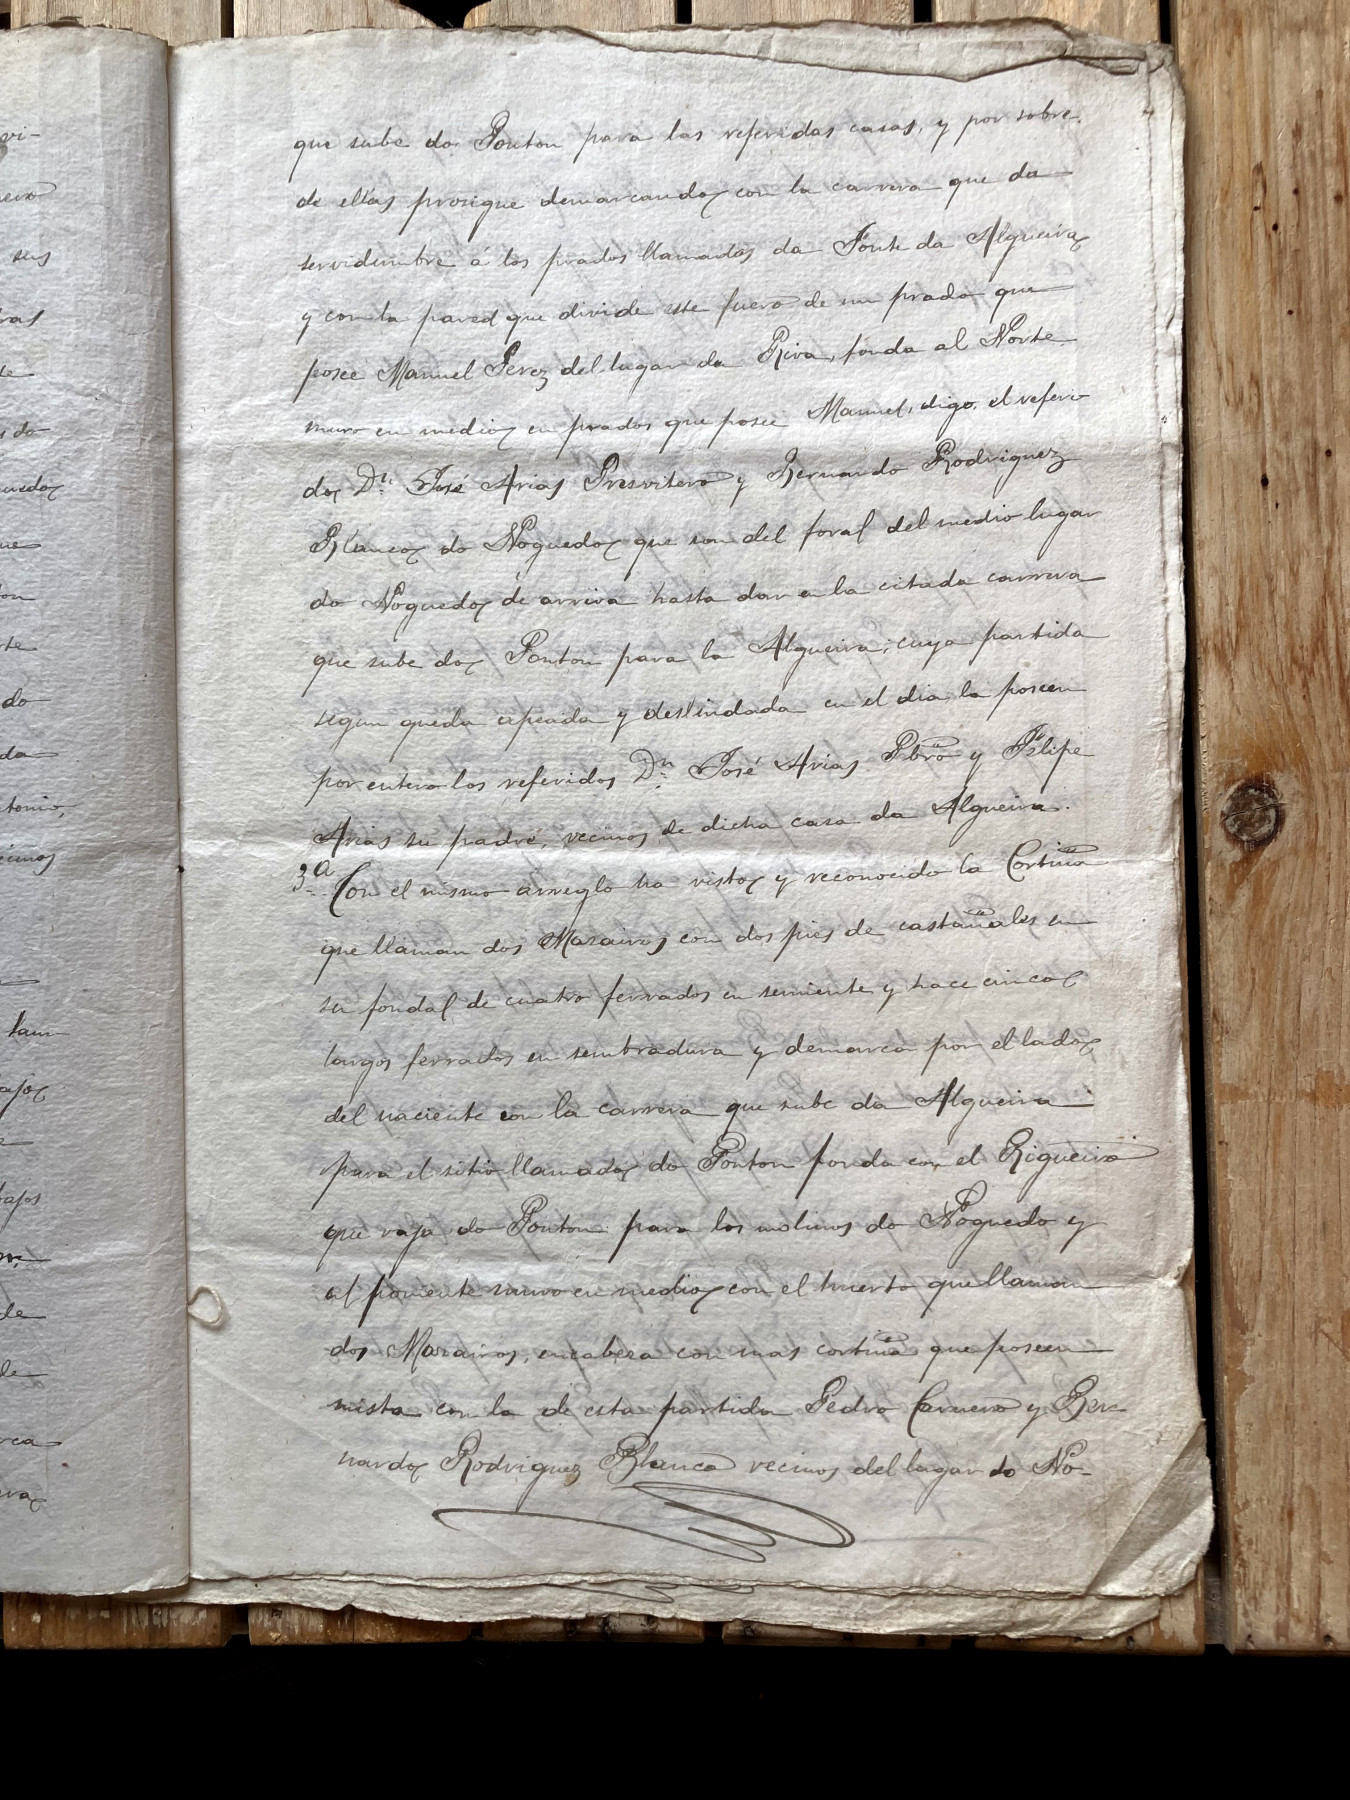 que sube do Ponton para las referidas casas, y por sobre
de ellas prosigue demarcando con la carrera que da
servidumbre á los prados llamados da Fonte da Algueira
y con la pared que divide este fuero de un prado que
posee Manuel Perez del lugar da Riva, fonda al Norte
muro en medio en prados que posee Manuel, digo, el referi
do Dn. José Arias Presvitero y Bernardo Rodriguez
Blanco do Noguedo que son del foral del medio lugar
do Noguedo de arriva hasta dar en la citada carrera
que sube do Ponton para la Algueira; cuya partida
segun queda apeada y deslindada en el dia la poseen
por entero los referidos Dn. José Arias Pbro y Felipe
Arias su padre, vecinos de dicha casa da Algueira.
3ª Con el mismo arreglo ha visto y reconocido la Cortiña
que llaman dos Marairos con dos pies de castañales en
su fondal de cuatro ferrados en semiente y hace cinco
largos ferrados en sembradura y demarca por el lado
del naciente con la carrera que sube da Algueira
para el sitio llamado do Ponton fonda con el Rigueiro
que vaja do Ponton para los molinos do Noguedo y
al poniente muro en medio con el huerto que llaman
dos Marairos, encabeza con mas cortiña que poseen
mista con la de esta partida Pedro Carnero y Ber-
nardo Rodriguez Blanco vecinos del lugar do No-
vi-
sus
do
te
do
da
tonio,
cinos
bajos
de
de